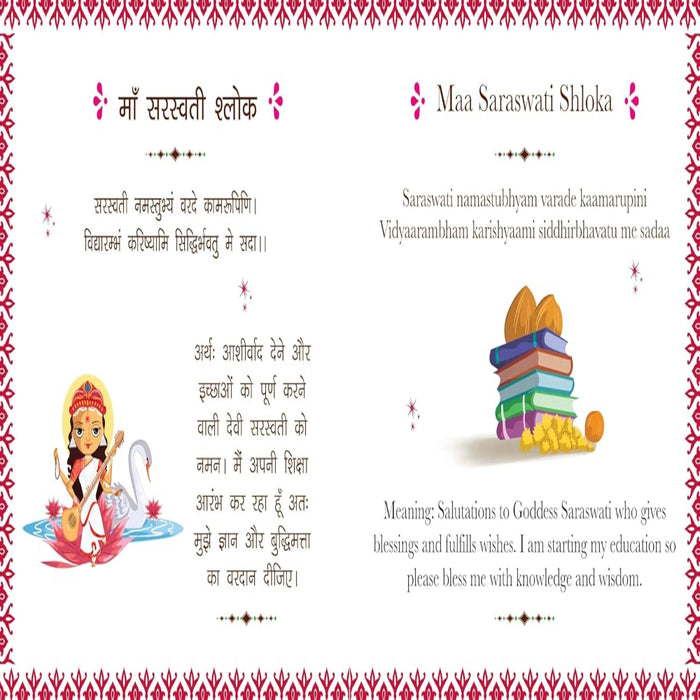 माँ सरस्वती श्लोक
सरस्वती नमस्तुभ्यं वरदे कामरूपिणि।
विद्यारम्भं करिष्यामि सिद्धिर्भवतु मे सदा।।
अर्थः आशीर्वाद देने और
इच्छाओं को पूर्ण करने
वाली देवी सरस्वती को
नमन। मैं अपनी शिक्षा
आरंभ कर रहा हूँ अतः
मुझे ज्ञान और बुद्धिमत्ता
का वरदान दीजिए।
Maa Saraswati Shloka
Saraswati namastubhyam varade kaamarupini
Vidyaarambham karishyaami siddhirbhavatu me sadaa
Meaning: Salutations to Goddess Saraswati who gives
blessings and fulfills wishes. I am starting my education so
please bless me with knowledge and wisdom.